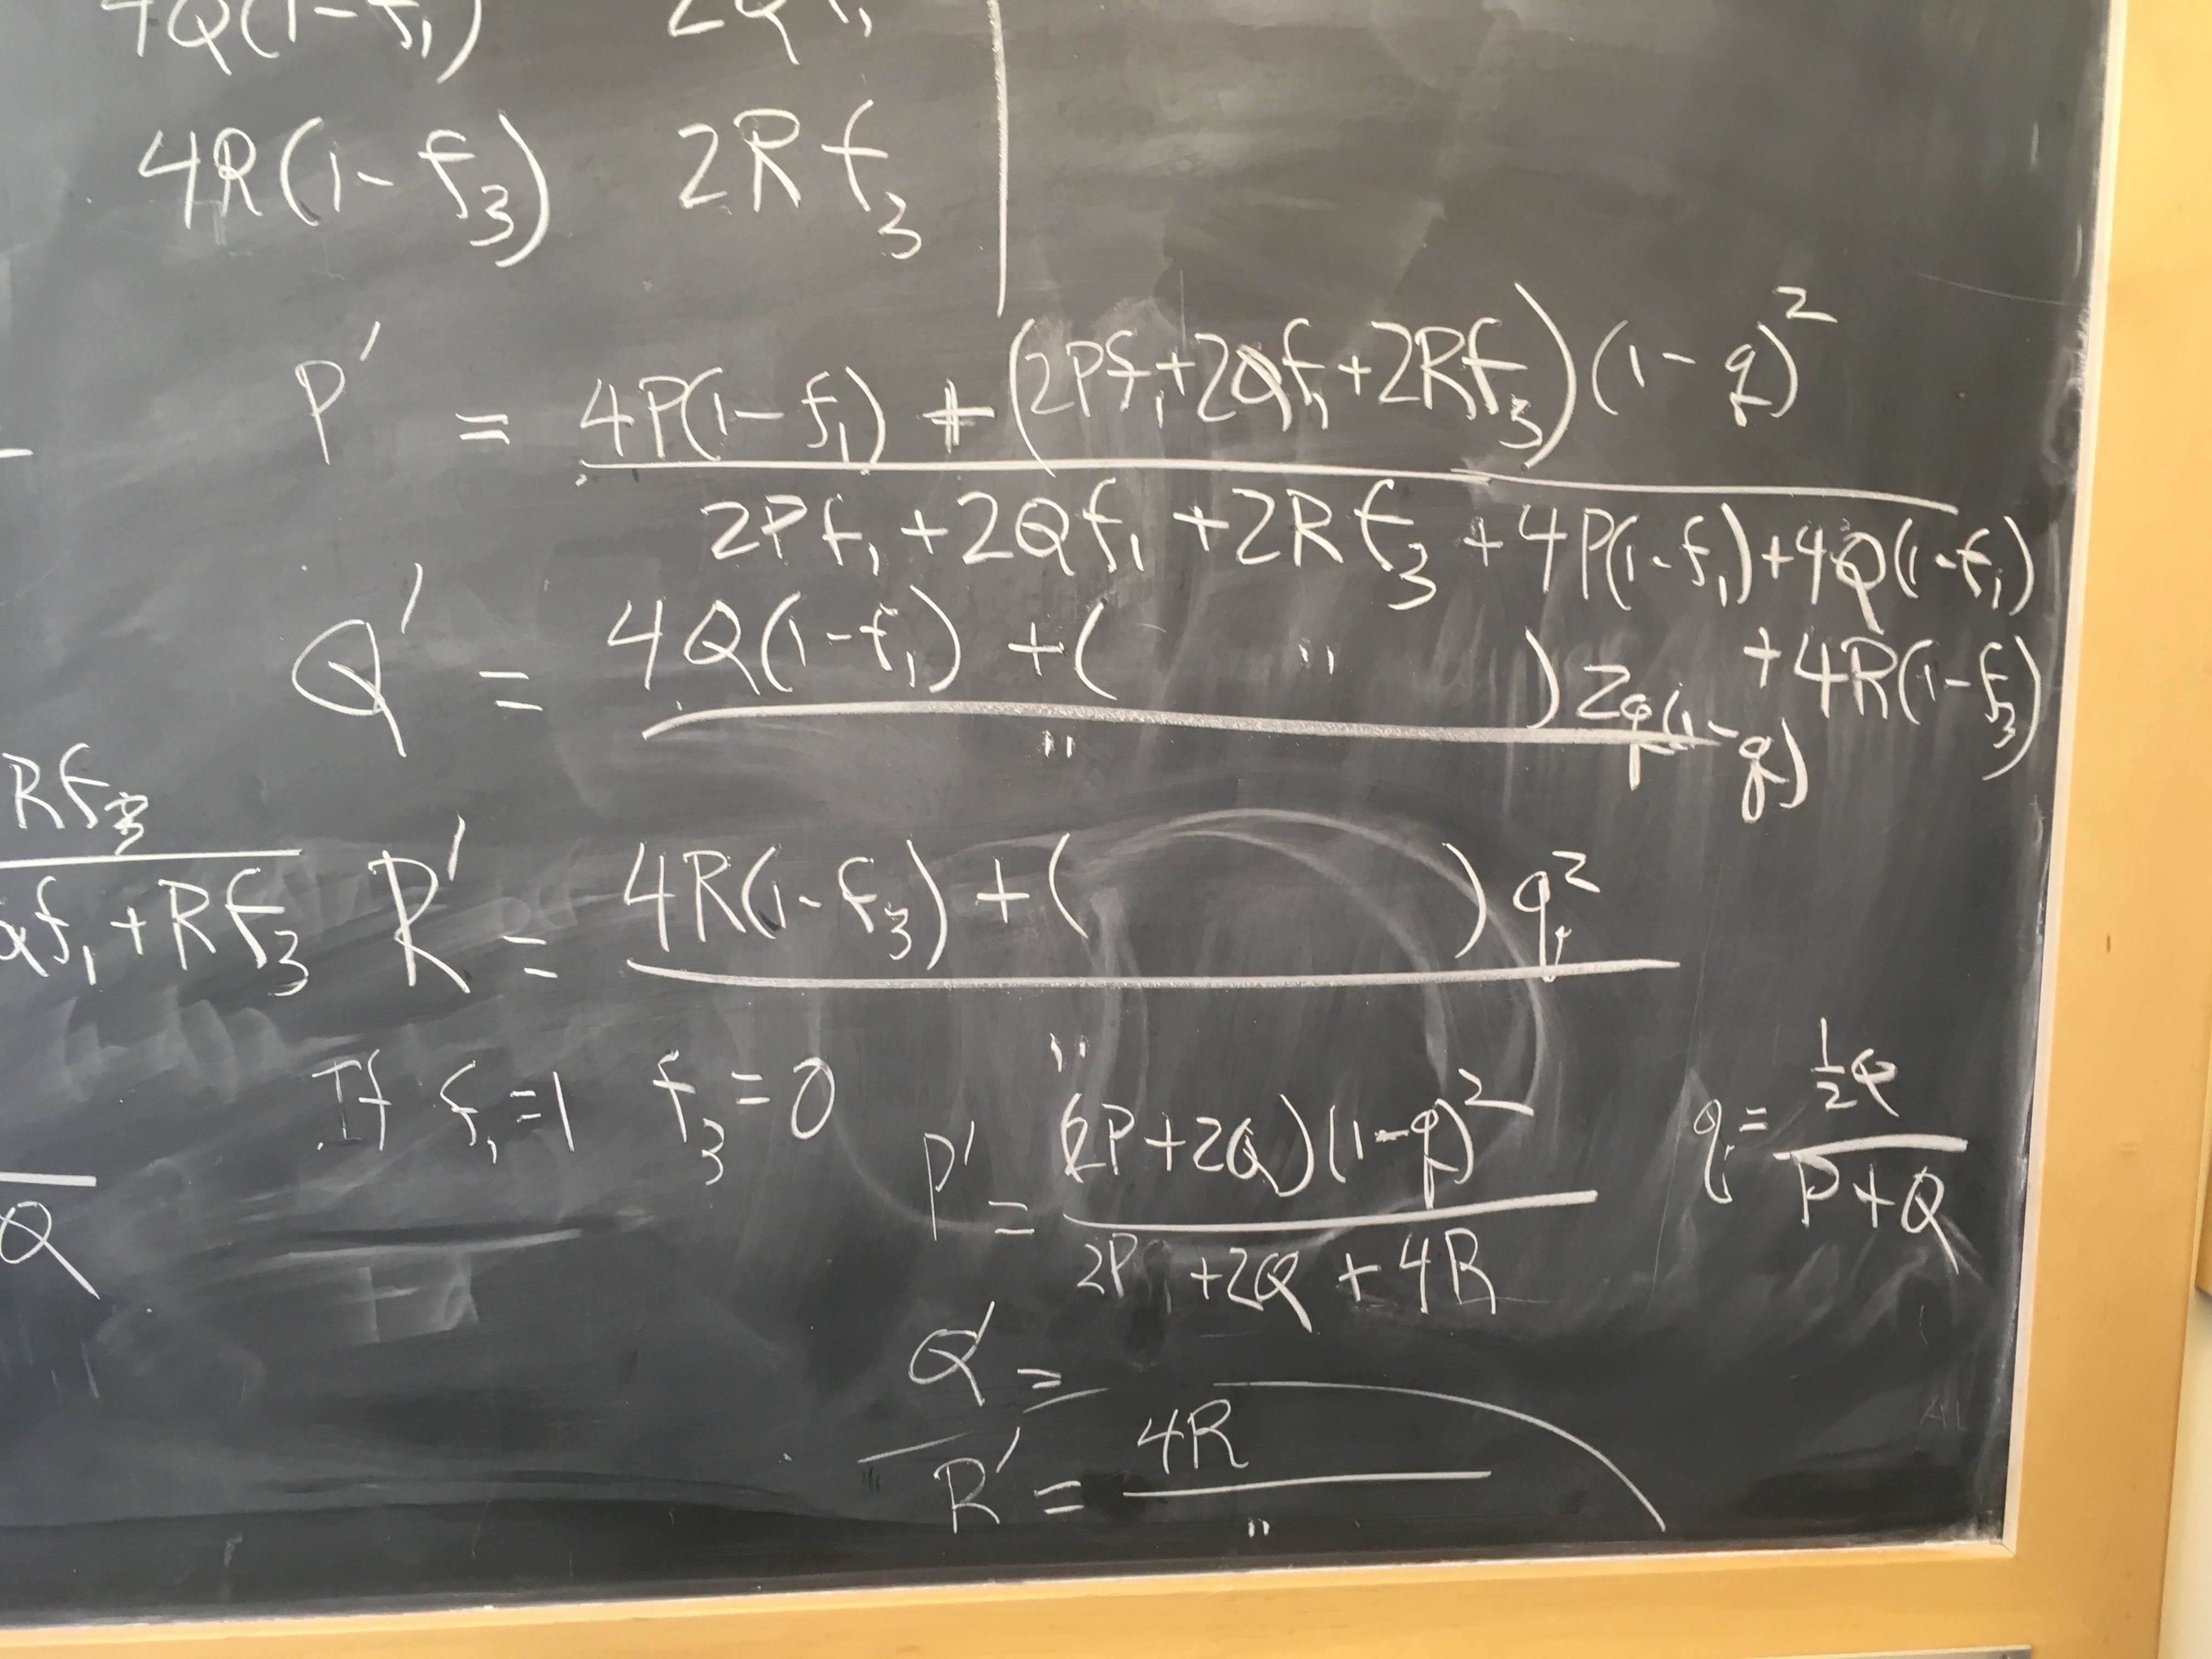 4Q(1-f₁) 2Qf₁
4R(1-f₃) 2Rf₃
P' = 4P(1-f₁) + (2Pf₁+2Qf₁+2Rf₃)(1-q)²
2Pf₁+2Qf₁+2Rf₃+4P(1-f₁)+4Q(1-f₁)
+4R(1-f₃)
Q' = 4Q(1-f₁) + ( " ) 2q(1-q)
"
Rf₃
Qf₁+Rf₃
R' = 4R(1-f₃) + ( ) q²
"
If f₁=1 f₃=0
Q
P' = (2P+2Q)(1-q)²
2P+2Q+4R
q = ½Q
P+Q
Q' =
R' = 4R
"